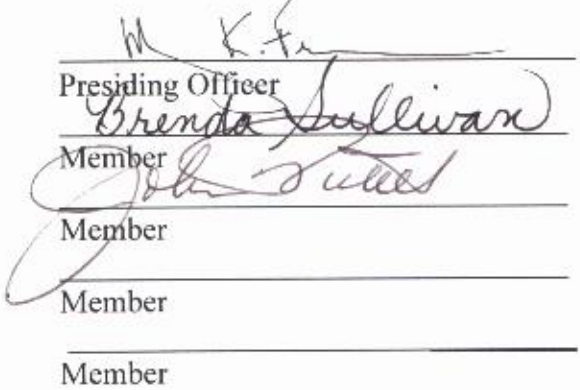 M K. F
Presiding Officer
Brenda Sullivan
Member
John
Member
Member
Member